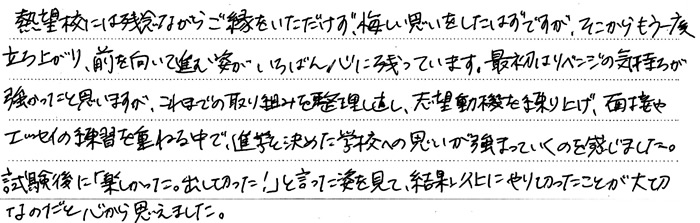 熱望校には残念ながらご縁をいただけず、悔しい思いをしたはずですが、そこからもう一度
立ち上がり、前を向いて進む姿がいちばん心に残っています。最初はリベンジの気持ちが
強かったと思いますが、これまでの取り組みを整理し直し、志望動機を練り上げ、面接や
エッセイの練習を重ねる中で、進学と決めた学校への思いが強まっていくのを感じました。
試験後に「楽しかった。出し切った！」と言った姿を見て、結果以上にやり切ったことが大切
なのだと心から思えました。